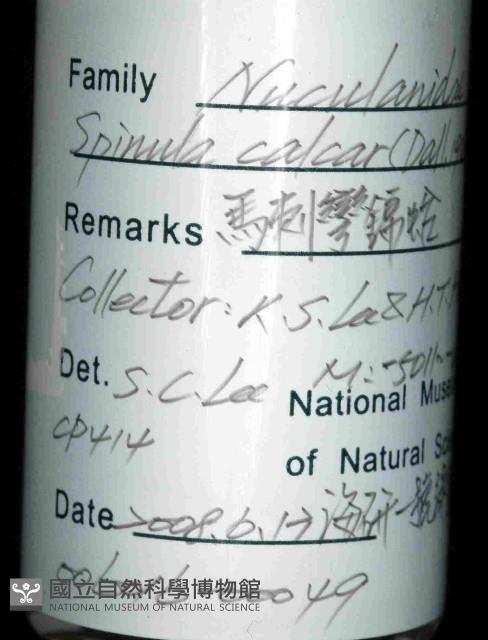 Family Nuculanidae
Spinula calcar (Dall,
Remarks 馬刺彎錦蛤
Collector: K.S. Lee & H.T.
Det. S.C. Lee M: -5011~
National Muse
CP414
of Natural Sc
Date 2008.6.17 海研一號
0049
國立自然科學博物館
NATIONAL MUSEUM OF NATURAL SCIENCE